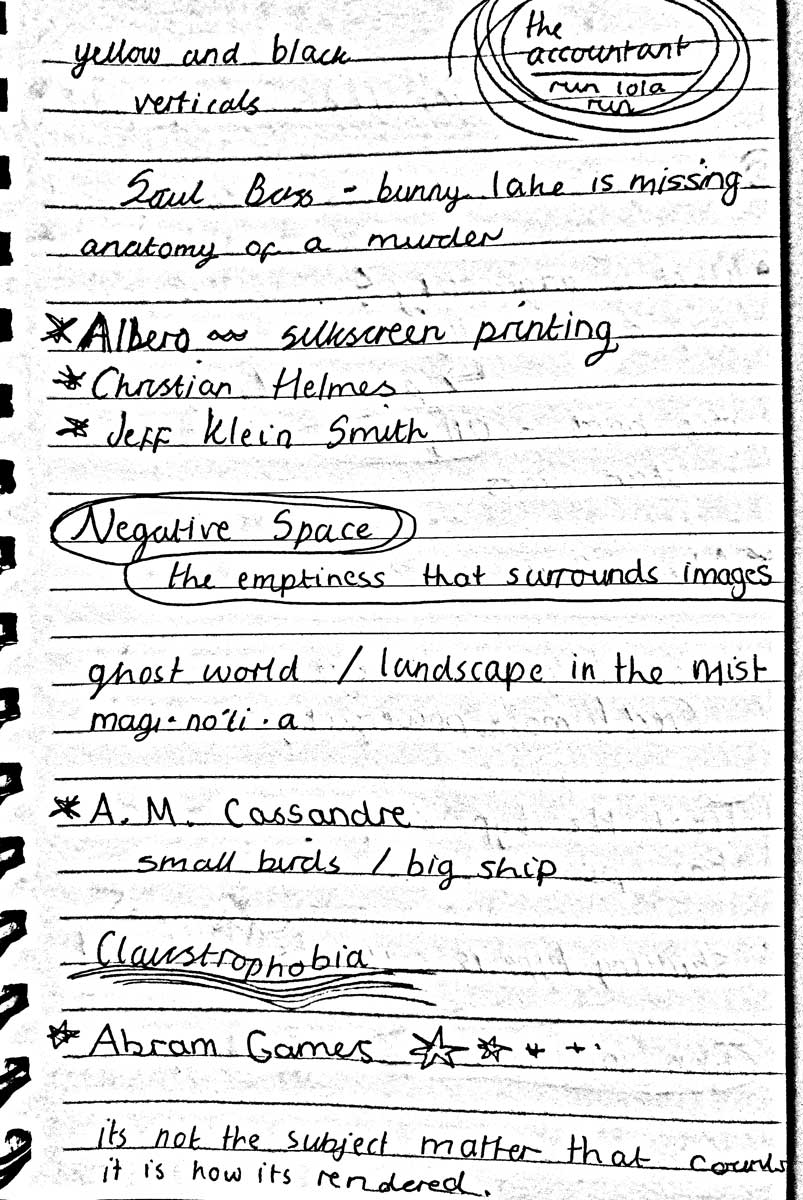 the
accountant
run lola
run
yellow and black
verticals
Saul Bass - bunny lake is missing
anatomy of a murder
Albero silkscreen printing
Christian Helmes
Jeff Klein Smith
Negative Space
the emptiness that surrounds images
ghost world / landscape in the mist
A. M. Cassandre
small birds / big ship
Claustrophobia
Abram Games
its not the subject matter that counts
it is how its rendered.